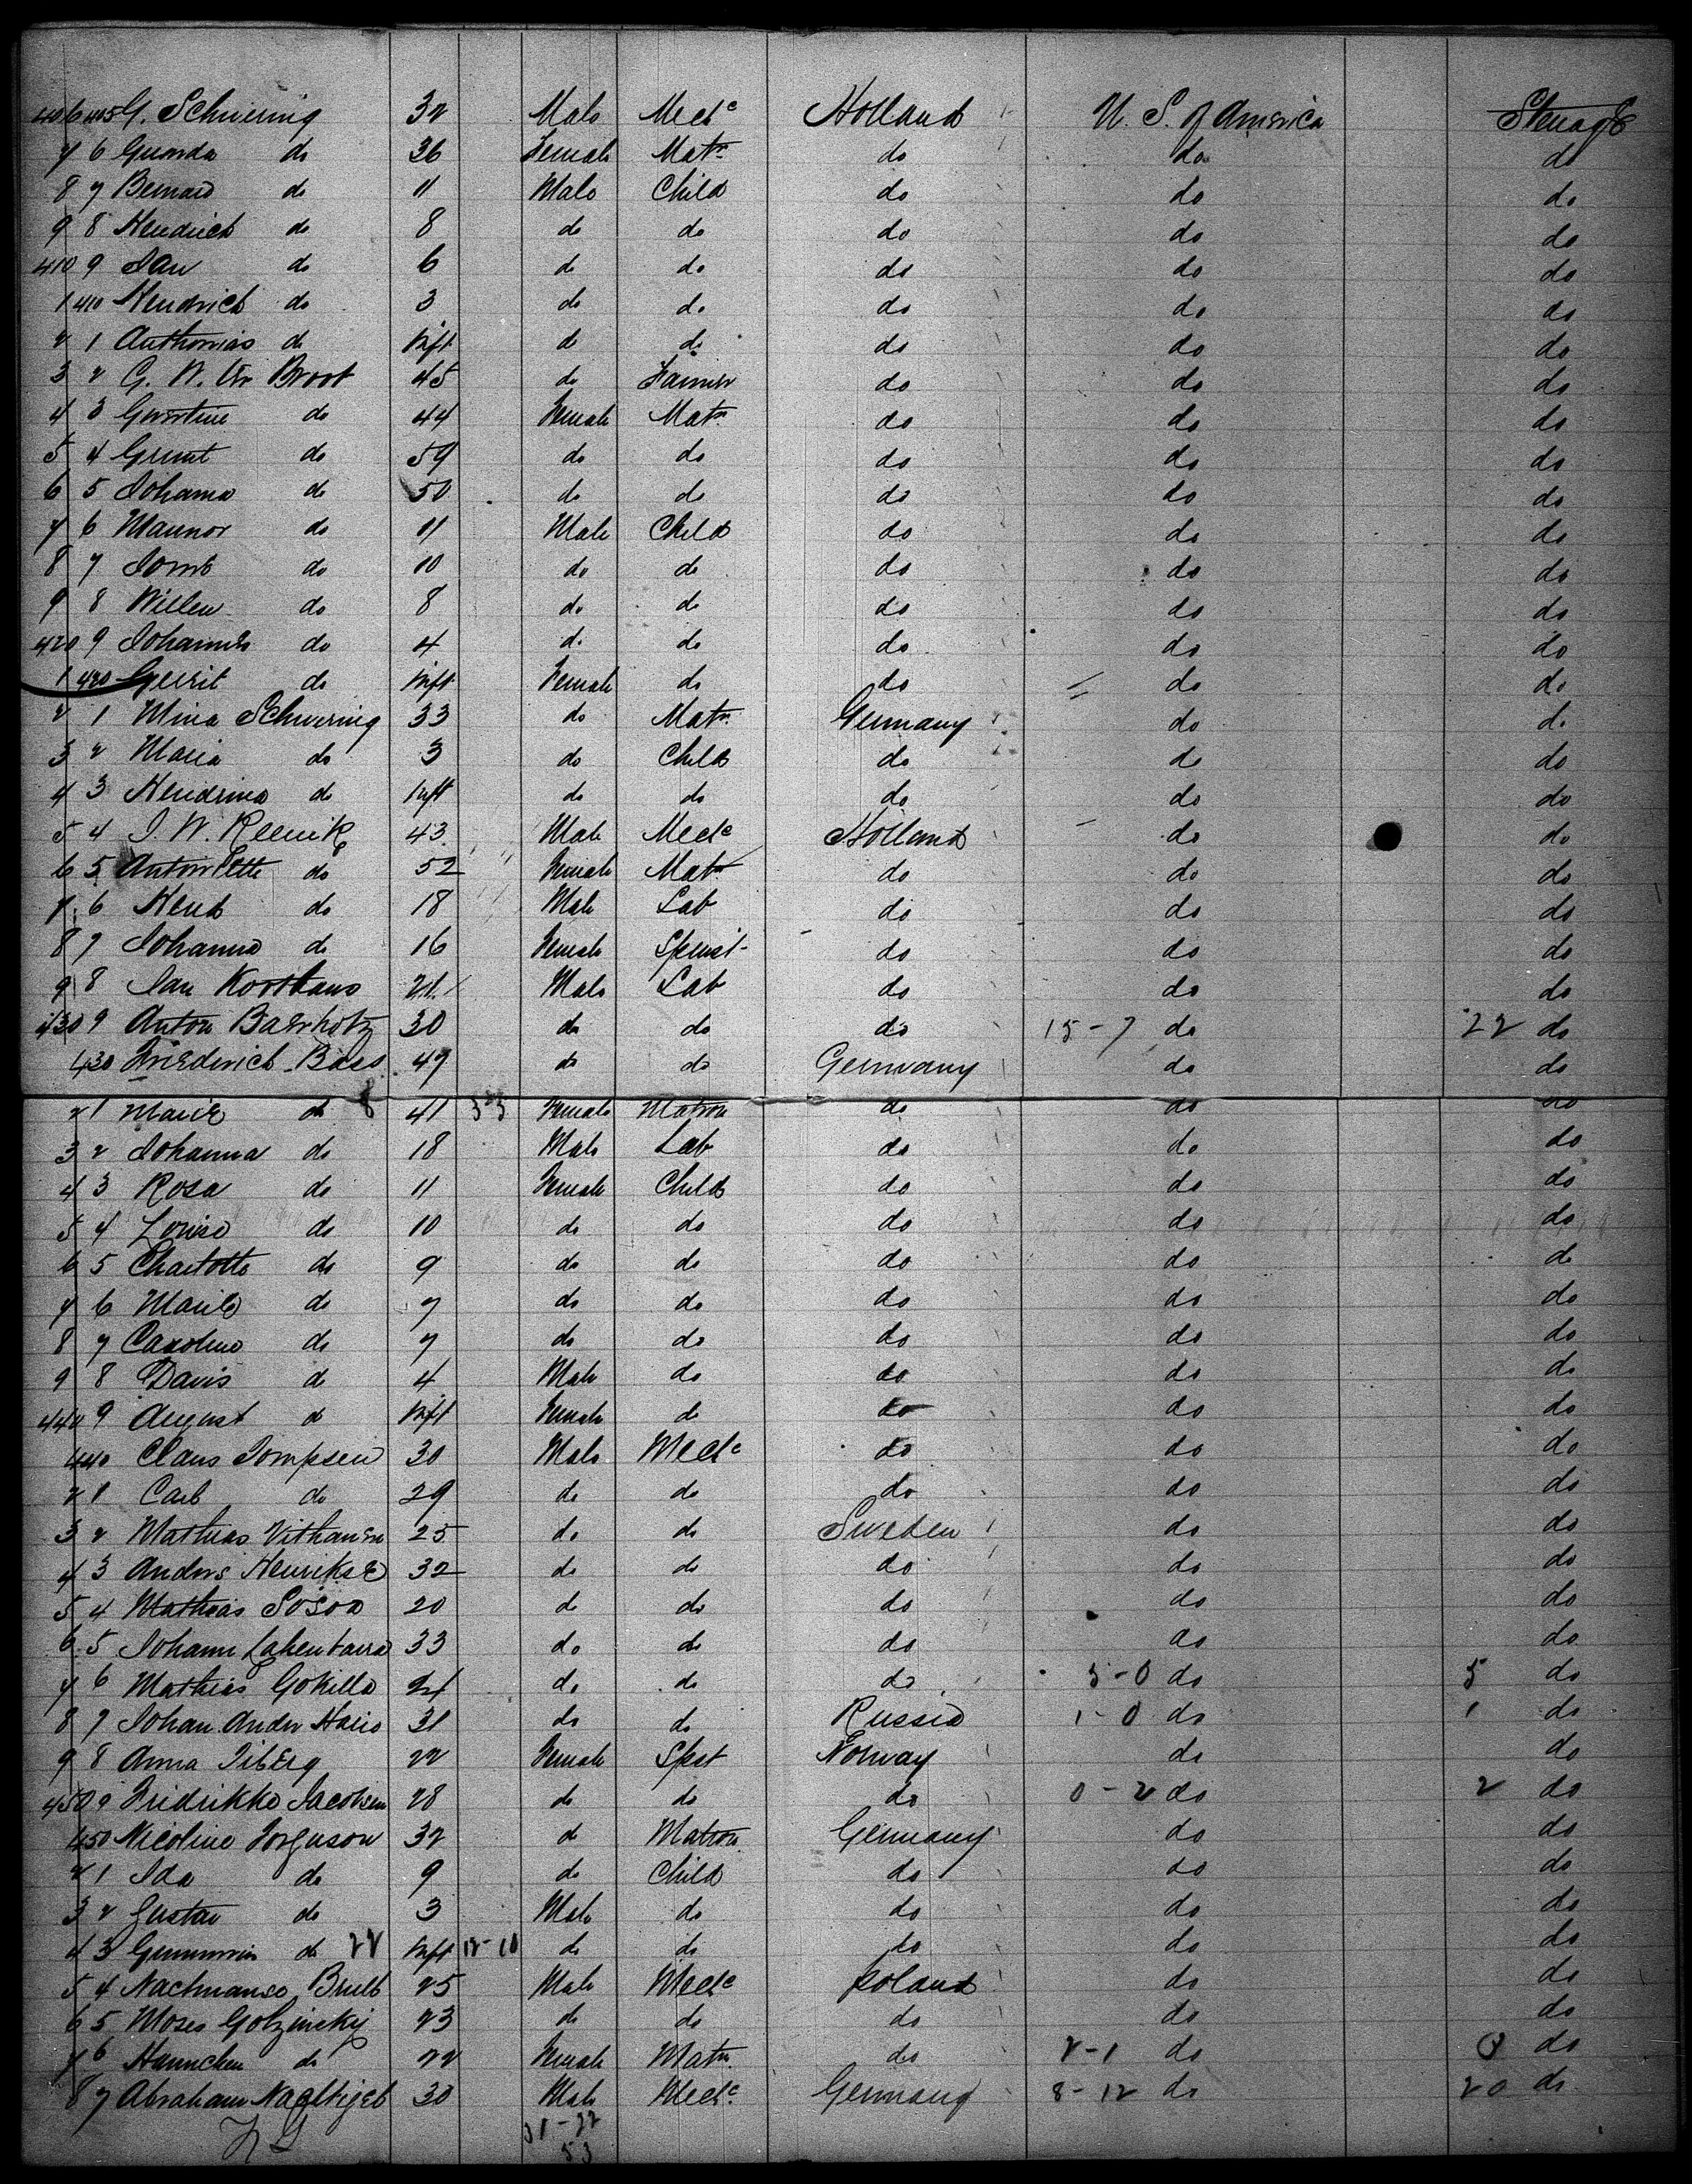 406 405 G. Schwering 32 Male Mech Holland U. S. of America Steerage
7 6 Guenda do 36 Female Matn do do do
8 7 Bernard do 11 Male Child do do do
9 8 Hendrick do 8 do do do do do
410 9 Jan do 6 do do do do do
1 410 Hendrick do 3 do do do do do
2 1 Anthonias do Inft do do do do do
3 2 G. W. Broot 45 do Farmer do do do
4 3 do 44 Female Matn do do do
5 4 do 59 do do do do do
6 5 Johanna do 50 do do do do do
7 6 Mannor do 11 Male Child do do do
8 7 do 10 do do do do do
9 8 Willem do 8 do do do do do
420 9 Johannes do 4 do do do do do
1 420 Gerrit do Inft Female do do do do
2 1 Mina Schwering 33 do Matn Germany do do
3 2 Maria do 3 do Child do do do
4 3 Hendrina do Inft do do do do do
5 4 J. W. Reenik 43 Male Mech Holland do do
6 5 Antoinette do 52 Female Matn do do do
7 6 Hend do 18 Male Lab do do do
8 7 Johanna do 16 Female Spinst do do do
9 8 Jan Korthaus 21 Male Lab do do do
430 9 Anton Baerholz 30 do do do 15-7 do 22 do
430 Friederich Bass 47 do do Germany do do
2 1 Marie do 8 41 33 Female Matron do do do
3 2 Johanna do 18 Male Lab do do do
4 3 Rosa do 11 Female Child do do do
5 4 Louise do 10 do do do do do
6 5 Charlotte do 9 do do do do do
7 6 Marie do 7 do do do do do
8 7 Caroline do 7 do do do do do
9 8 Davis do 4 Male do do do do
440 9 August do Inft Female do do do do
440 Claus Tompsen 30 Male Mech do do do
2 1 Carl do 29 do do do do do
3 2 Mathias 25 do do Sweden do do
4 3 Anders Henrikse 32 do do do do do
5 4 Mathias 20 do do do do do
6 5 Johann 33 do do do do do
7 6 Mathias Gokilla 21 do do do 5-0 do 5 do
8 7 Johan Ander 31 do do Russia 1-0 do 1 do
9 8 Anna Iiberg 22 Female Spst Norway do do
450 9 Fridrikke Jacobsen 28 do do do 0-2 do 2 do
450 Nicoline Forguson 32 do Matron Germany do do
2 1 Ida do 9 do Child do do do
3 2 Gustav do 3 Male do do do do
4 3 do 22 Inft 12-10 do do do do do
5 4 Brull 25 Male Mech Poland do do
6 5 Moses Golzinsky 23 do do do do do
7 6 Hannchen do 22 Female Matn do 2-1 do 3 do
8 7 Abraham 30 Male Mech Germany 8-12 do 20 do
31-22
53